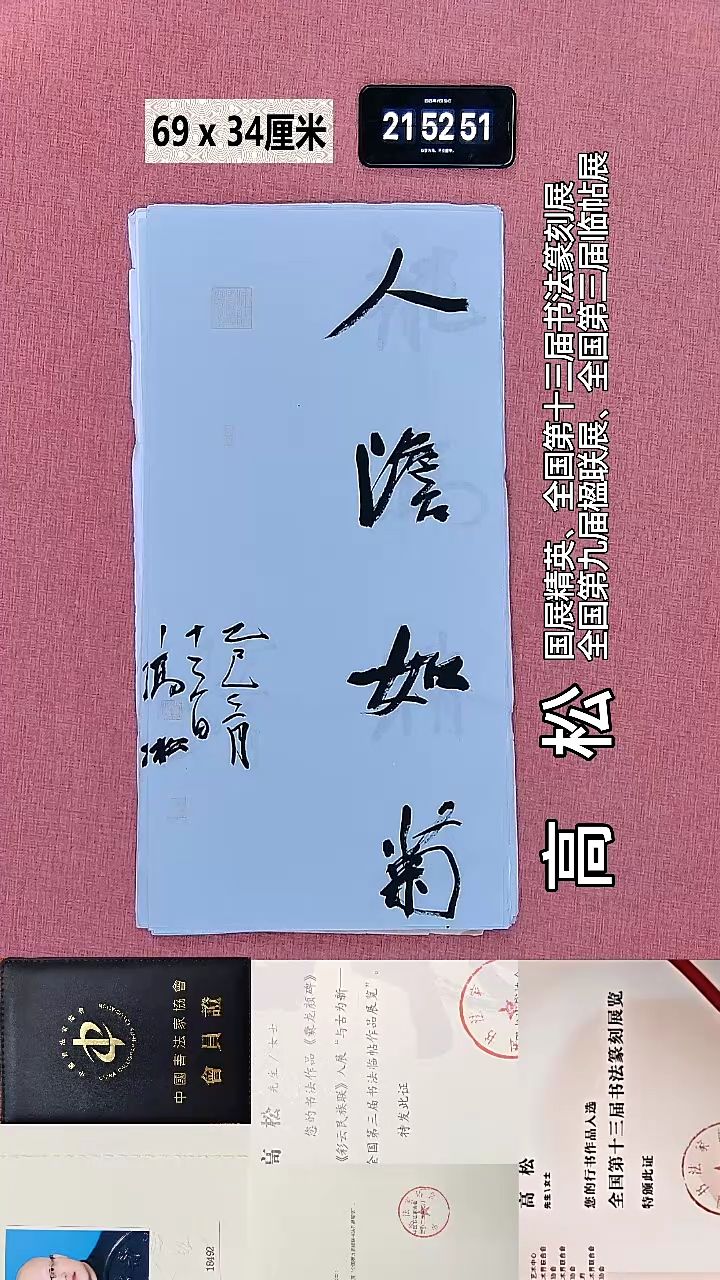 69 x 34厘米
21 52 51
人
澹
如
菊
乙巳三月
十三日
高松
国展精英、全国第十三届书法篆刻展
全国第九届楹联展、全国第三届临帖展
高 松
中國書法家協會
會員證
高 松 先生/女士
您的书法作品《爨龙颜碑》
《彩云民族联》入展“与古为新——
全国第三届书法临帖作品展览”。
特发此证
高 松
先生\女士
您的行书作品入选
全国第十三届书法篆刻展览
特颁此证
18492